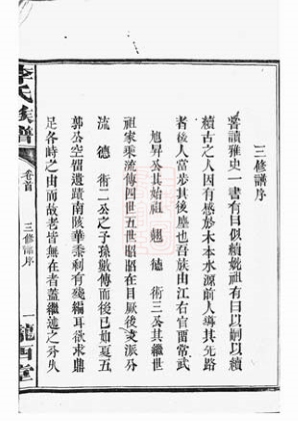 三修譜序
嘗讀雅史一書有曰似續妣祖有曰以嗣以續
續古之人因有感於木本水源前人導其先路
者後人當步其後塵也吾族由江右官而常武
旭昇公其始祖 翹 德 術三公其繼世
祖家乘流傳四世五世昭昭在目厥後支派分
流 德 術二公之子孫數傳而後已如夏五
郭公空留遺蹟南陔華黍剩有殘編耳欲求鼎
足各時之由而故老皆無在者蓋繼述之乃久
李氏族譜
卷首
三修譜序
一
隴西堂